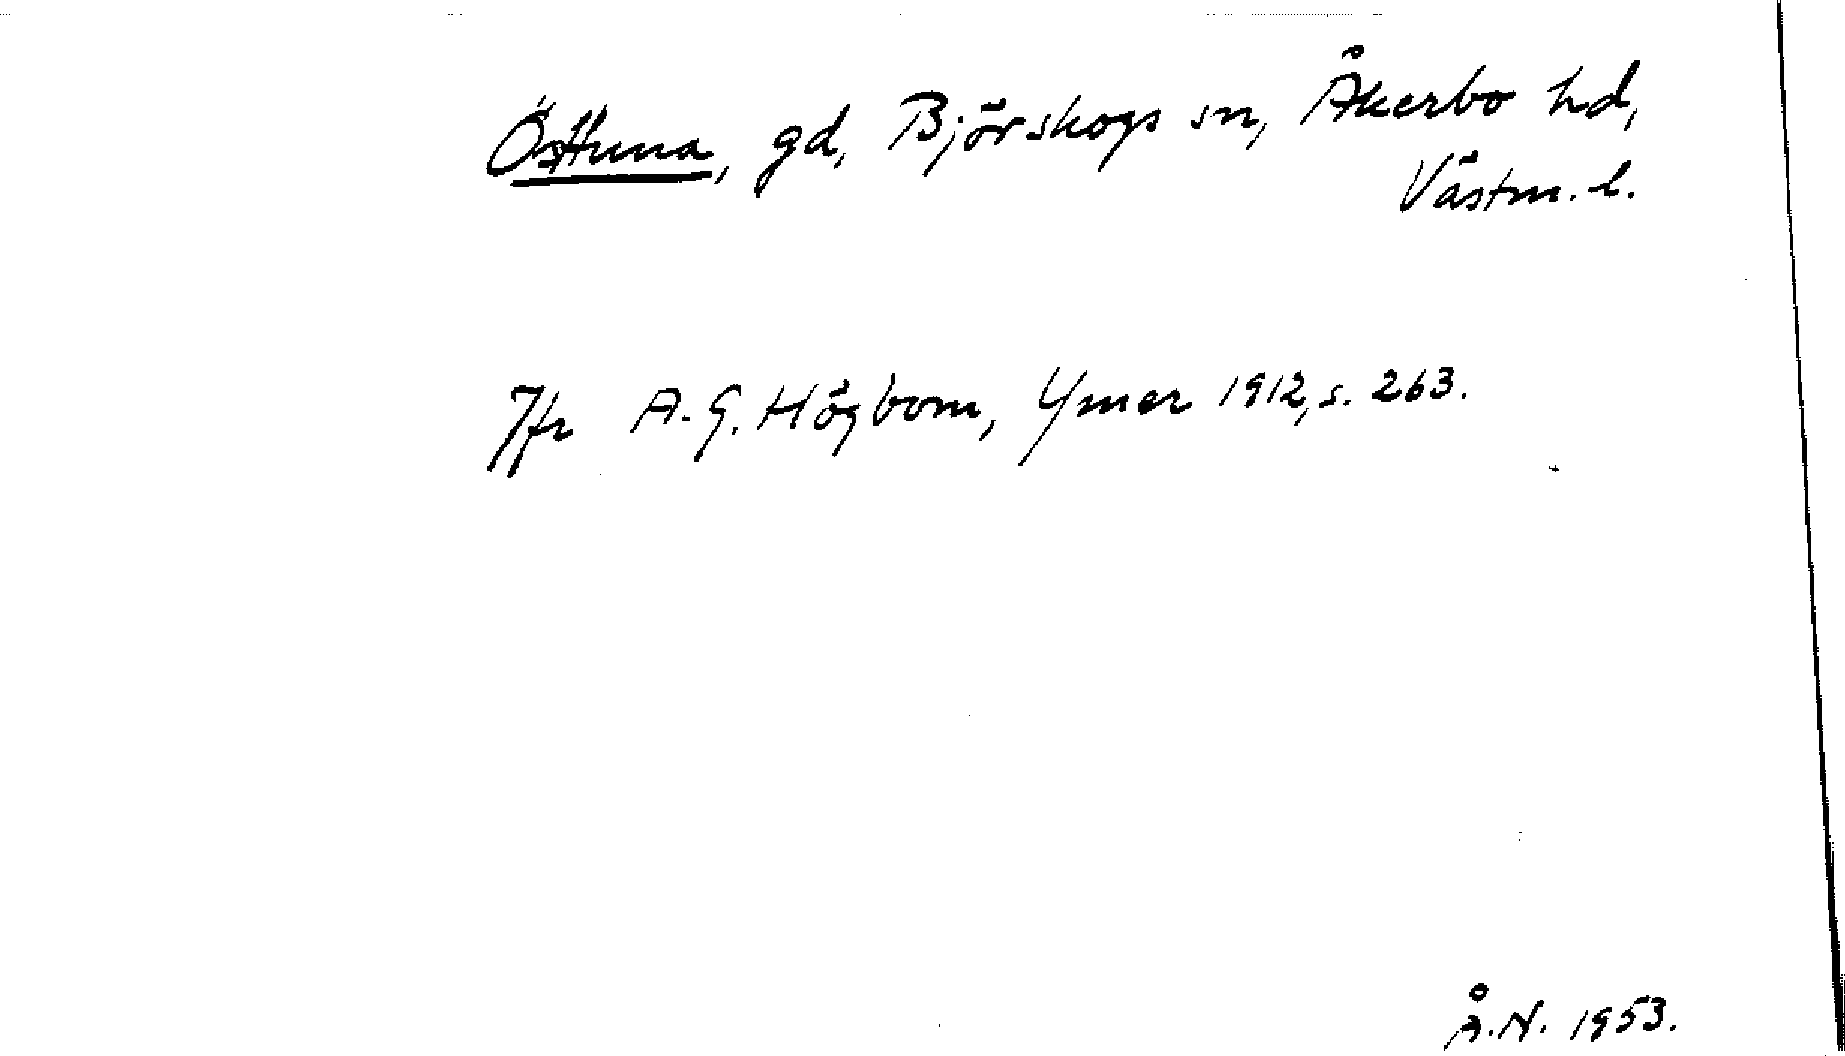 Östtuna, gd, Björskogs sn, Åkerbo hd,
Västm. l.
Jfr A. G. Högbom, Ymer 1912, s. 263.
Å.N. 1953.